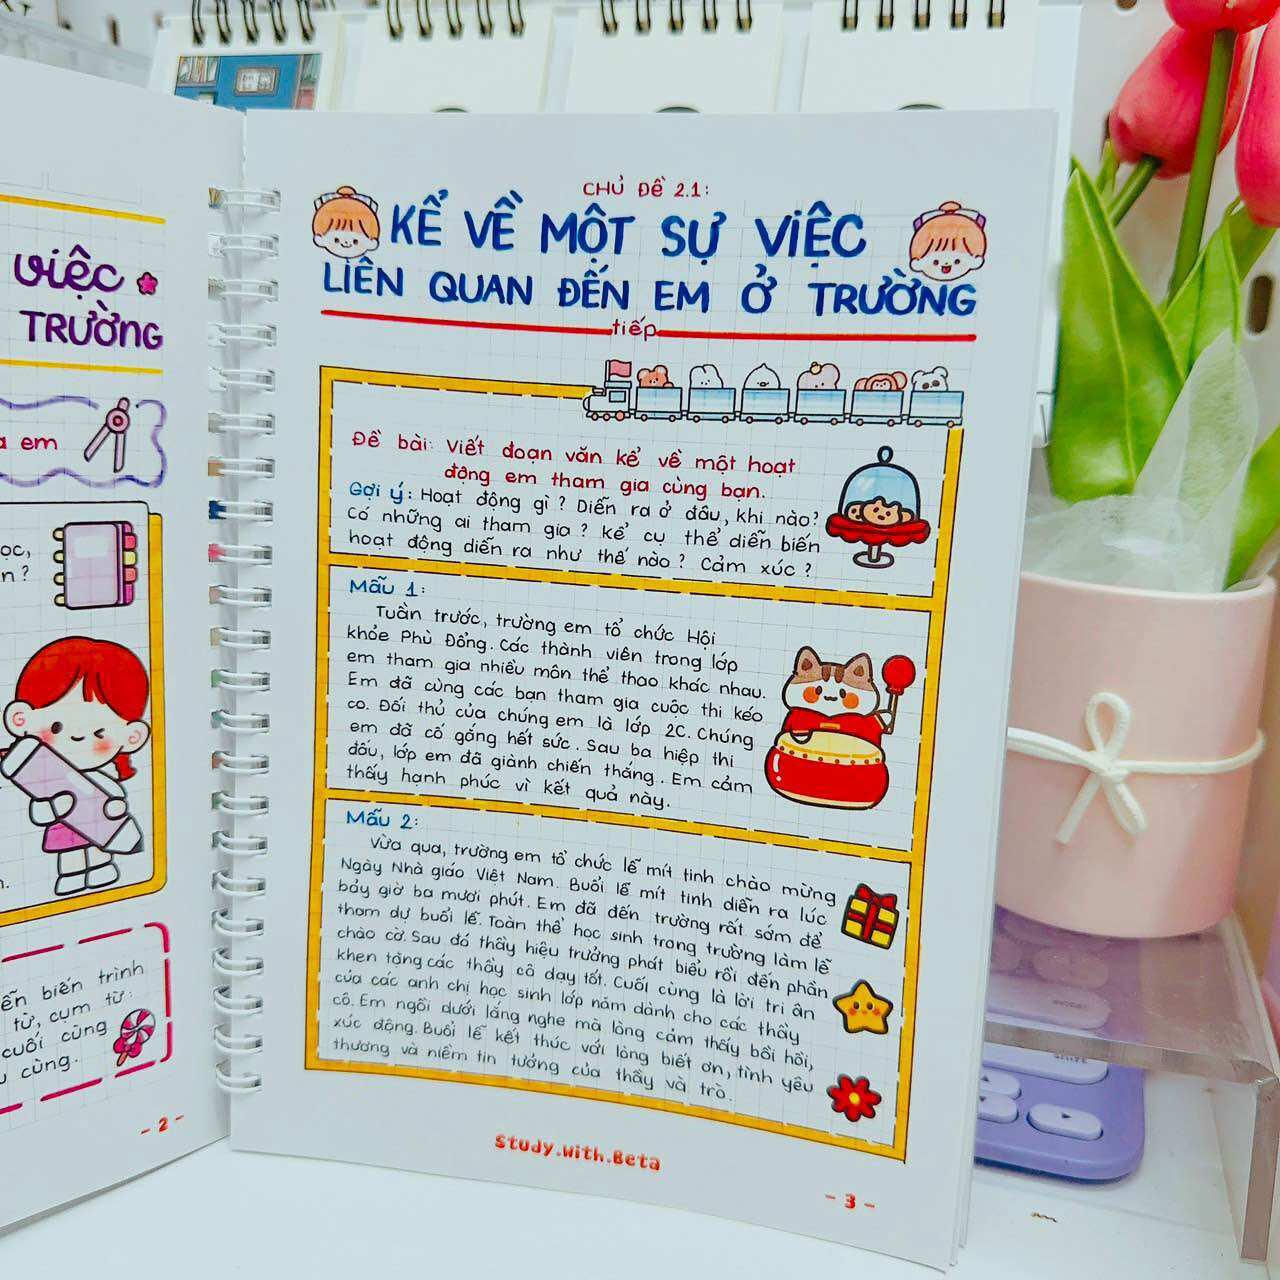 việc
TRƯỜNG
em
n?
ễn biến trình
từ, cụm từ:
cuối cùng
cùng.
- 2 -
CHỦ ĐỀ 2.1:
KỂ VỀ MỘT SỰ VIỆC
LIÊN QUAN ĐẾN EM Ở TRƯỜNG
tiếp
Đề bài: Viết đoạn văn kể về một hoạt
động em tham gia cùng bạn.
Gợi ý: Hoạt động gì? Diễn ra ở đâu, khi nào?
Có những ai tham gia? Kể cụ thể diễn biến
hoạt động diễn ra như thế nào? Cảm xúc?
Mẫu 1:
Tuần trước, trường em tổ chức Hội
khỏe Phù Đổng. Các thành viên trong lớp
em tham gia nhiều môn thể thao khác nhau.
Em đã cùng các bạn tham gia cuộc thi kéo
co. Đối thủ của chúng em là lớp 2C. Chúng
em đã cố gắng hết sức. Sau ba hiệp thi
đấu, lớp em đã giành chiến thắng. Em cảm
thấy hạnh phúc vì kết quả này.
Mẫu 2:
Vừa qua, trường em tổ chức lễ mít tinh chào mừng
Ngày Nhà giáo Việt Nam. Buổi lễ mít tinh diễn ra lúc
bảy giờ ba mươi phút. Em đã đến trường rất sớm để
tham dự buổi lễ. Toàn thể học sinh trong trường làm lễ
chào cờ. Sau đó thầy hiệu trưởng phát biểu rồi đến phần
khen tặng các thầy cô dạy tốt. Cuối cùng là lời tri ân
của các anh chị học sinh lớp năm dành cho các thầy
cô. Em ngồi dưới lắng nghe mà lòng cảm thấy bồi hồi,
xúc động. Buổi lễ kết thúc với lòng biết ơn, tình yêu
thương và niềm tin tưởng của thầy và trò.
Study.with.Beta
- 3 -